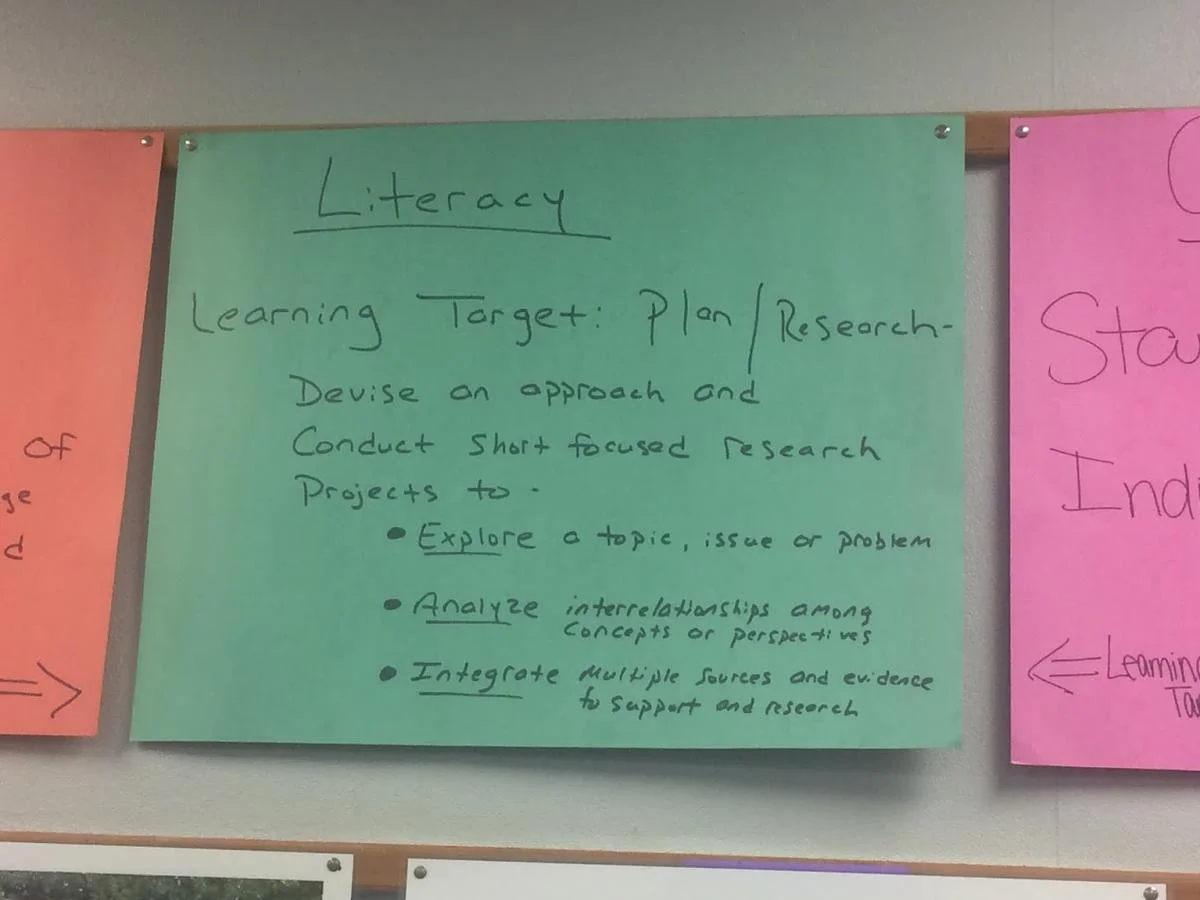 Literacy
Learning Target: Plan/Research-
Devise an approach and
Conduct short focused research
Projects to -
• Explore a topic, issue or problem
• Analyze interrelationships among
concepts or perspectives
• Integrate multiple sources and evidence
to support and research
of
d
Learning